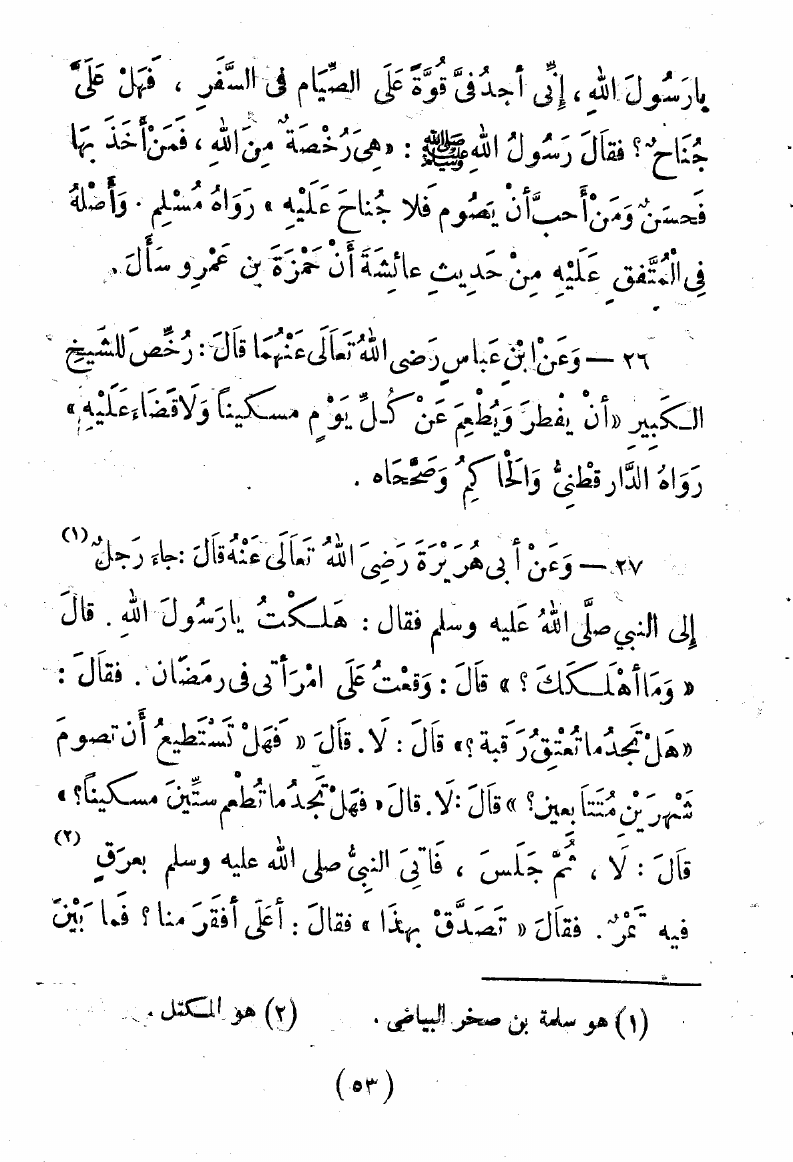 يارَسُولَ اللهِ، إِنِّى أجدُ فىَّ قُوَّةً عَلَى الصِّيَام فى السَّفَرِ ، فَهَلْ عَلَىَّ
جُنَاحٌ؟ فقَالَ رَسُولُ اللهِ ﷺ : «هِىَ رُخْصَةٌ مِنَ اللهِ ، فَمَنْ أَخَذَ بِهَا
فَحسَنٌ وَمَنْ أَحبَّ أنْ يَصُوم فَلا جُناحَ عَلَيْهِ » رَوَاهُ مُسْلِم . وَأَصْلُهُ
فِى الْمُتَّفقِ عَلَيْهِ مِنْ حَدِيثِ عائِشَةَ أَنْ حَمْزَةَ بن عَمْرٍو سَأَلَ .
٢٦ — وَعَنْ ابْنِ عَباسٍ رَضى اللهُ تَعَالَى عَنْهُمَا قالَ : رُخِّصَ للشَّيخِ
الكَبِيرِ «أنْ يفْطرَ وَيُطْعِمَ عَنْ كُلِّ يَوْمٍ مسكيناً وَلَا قَضَاءَ عَلَيْهِ»
رَوَاهُ الدَّارقطْنِىُّ وَالْحَاكِمُ وَصَحَّحَاه .
٢٧ — وَعَنْ أَبى هُرَيْرَةَ رَضِىَ اللهُ تَعَالَى عَنْهُ قَالَ : جاءَ رَجلٌ (١)
إلى النبي صلَّى اللهُ عَليه وسلم فقال : هَلَكْتُ يارَسُولَ اللهِ . قالَ
« وَمَا أهْلَكَكَ ؟ » قالَ : وَقعْتُ عَلَى امْرَأتى فى رمَضَان . فقَالَ :
«هَلْ تَجدُ ما تُعْتِقُ رَقبة ؟» قالَ : لَا . قالَ « فَهَلْ تَسْتَطيعُ أن تصومَ
شَهْرَيْنِ مُتَتَابعين؟ » قالَ : لَا . قالَ « فهَلْ تَجدُ ما تُطْعم ستِّينَ مسكيناً؟ »
قالَ : لَا ، ثُمَّ جَلَسَ ، فَأتِىَ النبىُّ صلى الله عليه وسلم بعرَقٍ (٢)
فيه تَمْرٌ . فقَالَ « تَصَدَّقْ بهذَا » فقالَ : أعَلَى أفقَرَ منا ؟ فَما بَيْنَ
(١) هو سلمة بن صخر البياضى . (٢) هو المكتل .
(٥٣)